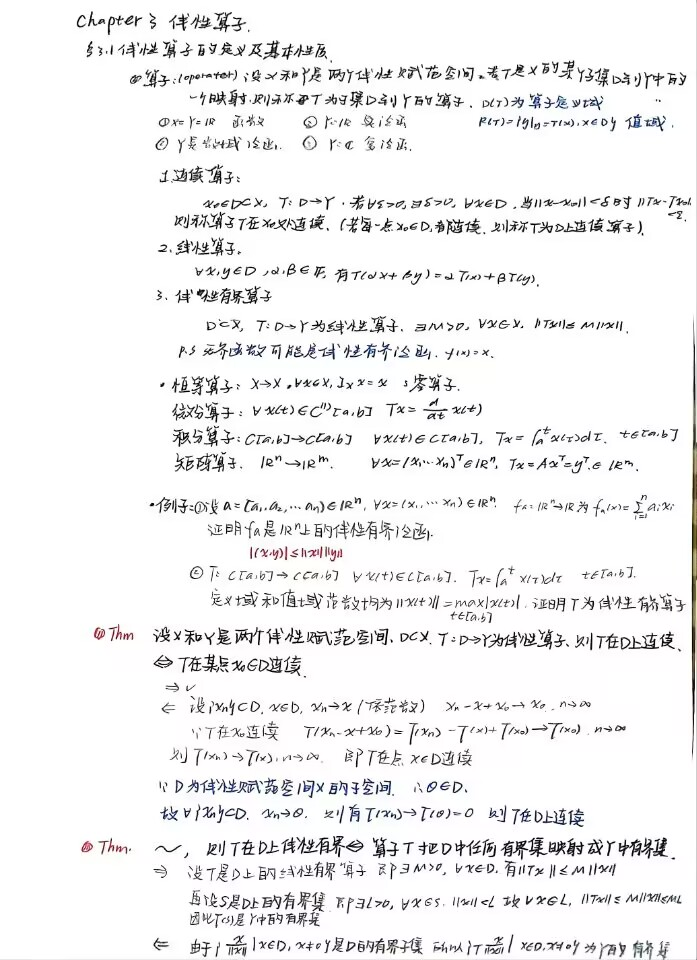 Chapter 3 线性算子.
§3.1 线性算子的定义及基本性质.
①算子:(operator) 设X和Y是两个线性赋范空间.若T是X的某子集D到Y中的
一个映射,则称T为子集D到Y的算子. D(T)为算子定义域
①X=Y=ℝ 函数 ② Y=ℝ 实泛函 R(T)={y|y=T(x),x∈D} 值域.
Y是数域 泛函. Y=ℂ 复泛函.
1.连续算子:
x₀∈D⊂X, T:D→Y. 若∀ε>0,∃δ>0, ∀x∈D, 当||x-x₀||<δ时 ||Tx-Tx₀||<ε.
则称算子T在x₀处连续. (若每一点x₀∈D,都连续.则称T为D上连续算子).
2.线性算子.
∀x,y∈D, α,β∈F, 有T(αx+βy)=αT(x)+βT(y).
3. 线性有界算子
D⊂X, T:D→Y为线性算子. ∃M>0, ∀x∈X, ||Tx||≤M||x||.
P.S 无界函数可能是线性有界泛函. f(x)=x.
·恒等算子: X→X, ∀x∈X, Iₓx=x ;零算子.
微分算子: ∀x(t)∈C⁽¹⁾[a,b] Tx=d/dt x(t)
积分算子: C[a,b]→C[a,b] ∀x(t)∈C[a,b], Tx=∫ₐᵗx(τ)dτ. t∈[a,b]
矩阵算子. ℝⁿ→ℝᵐ. ∀x=(x₁…xₙ)ᵀ∈ℝⁿ, Tx=Axᵀ=yᵀ.∈ℝᵐ.
·例子:①设a=[a₁,a₂,…aₙ)∈ℝⁿ, ∀x=(x₁,…xₙ)∈ℝⁿ. fa=ℝⁿ→ℝ为fₐ(x)=∑ᵢ₌₁ⁿaᵢxᵢ
证明fa是ℝⁿ上的线性有界泛函.
|(x,y)|≤||x||||y||
②T: C[a,b]→C[a,b] ∀x(t)∈C[a,b]. Tx=∫ₐᵗx(τ)dτ t∈[a,b].
定义域和值域范数均为||x(t)||=max|x(t)|. 证明T为线性有界算子
t∈[a,b]
① Thm 设X和Y是两个线性赋范空间.D⊂X.T:D→Y为线性算子.则T在D上连续.
⇔T在某点x₀∈D连续.
⇒ ✓
⇐ 设{xₙ}⊂D, x∈D, xₙ→x (依范数) xₙ-x+x₀→x₀. n→∞
∵T在x₀连续 T(xₙ-x+x₀)=T(xₙ)-T(x)+T(x₀)→T(x₀). n→∞
则T(xₙ)→T(x), n→∞. 即T在点x∈D连续
∵D为线性赋范空间X的子空间. ∴θ∈D.
故∀{xₙ}⊂D. xₙ→θ. 则有T(xₙ)→T(θ)=0 则T在D上连续
② Thm. ～, 则T在D上线性有界⇔算子T把D中任何有界集映射成Y中有界集.
⇒ 设T是D上的线性有界算子 即∃M>0, ∀x∈D.有||Tx||≤M||x||
再设S是D上的有界集. 即∃L>0, ∀x∈S. ||x||<L 故∀x∈L, ||Tx||≤M||x||≤ML
因此T(S)是Y中的有界集
⇐ 由于{x/||x|| | x∈D, x≠0}是D的有界子集 所以{T x/||x|| | x∈D, x≠0}为Y的有界集